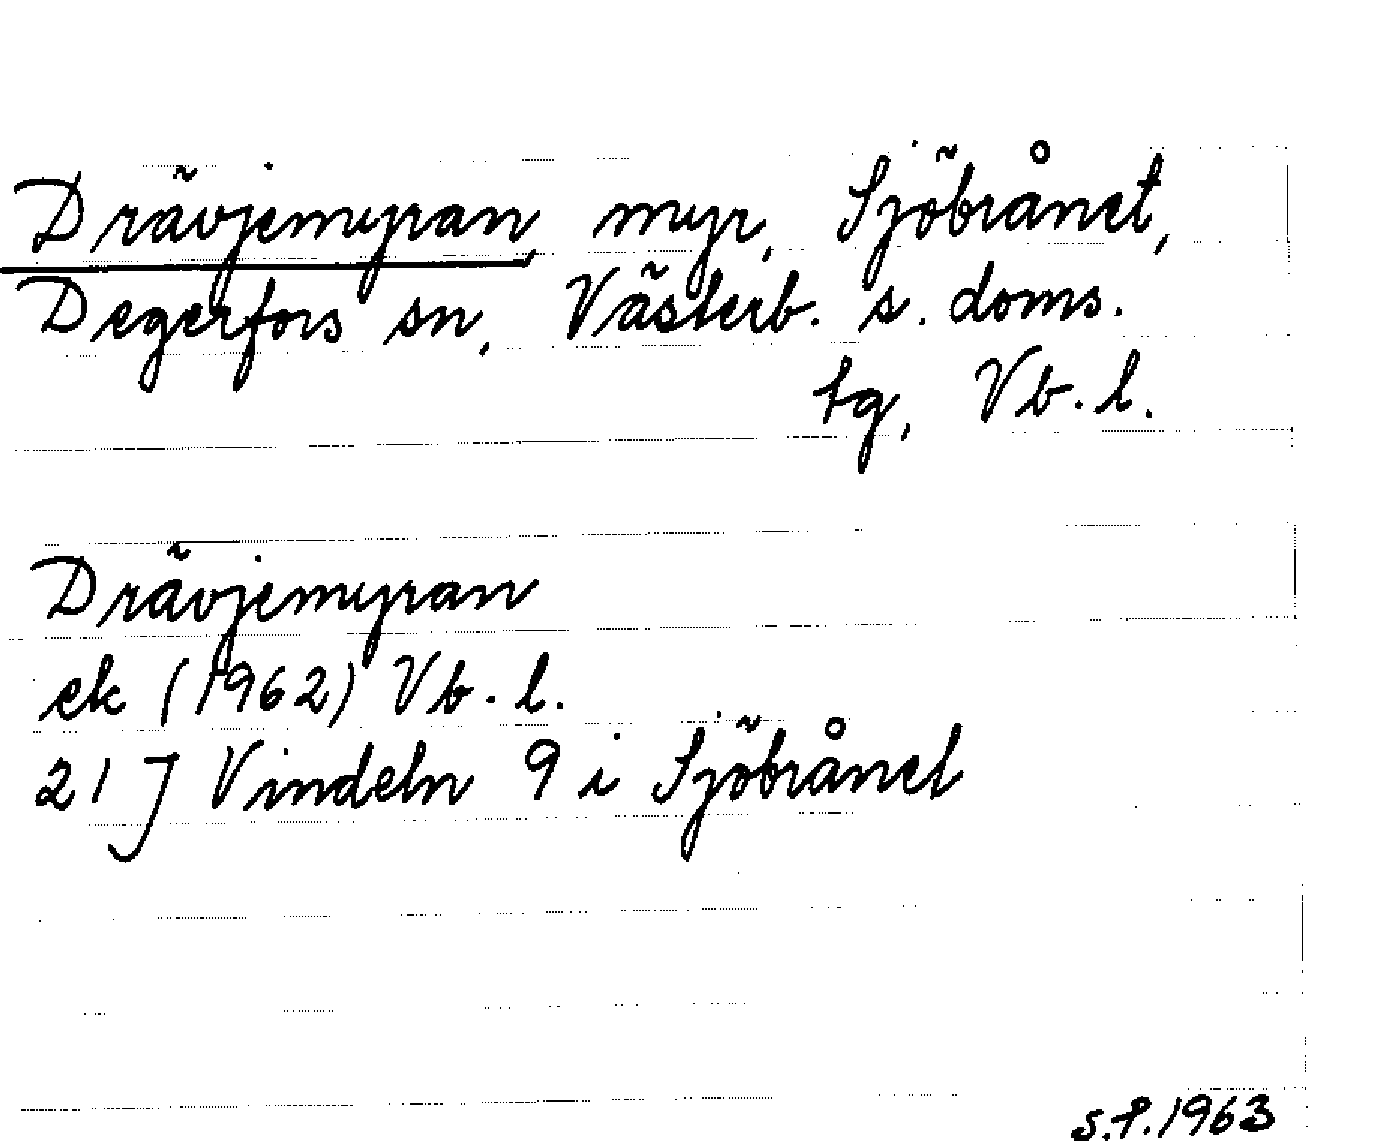 Drävjemyran, myr, Sjöbrånet,
Degerfors sn, Västerb. s. doms.
tg, Vb. l.
Drävjemyran
ek (1962) Vb. l.
21 J Vindeln 9 i Sjöbrånet
S.P. 1963